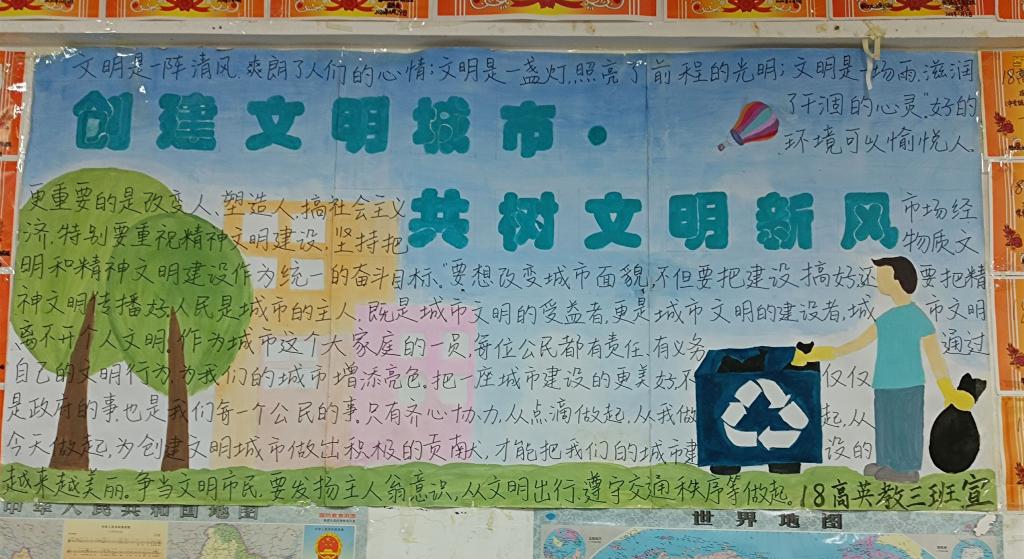 文明是一阵清风,爽朗了人们的心情;文明是一盏灯,照亮了前程的光明;文明是一场雨,滋润
了干涸的心灵”好的
环境可以愉悦人.
创建文明城市·
共树文明新风
更重要的是改变人、塑造人.搞社会主义市场经
济,特别要重视精神文明建设,坚持把物质文
明和精神文明建设作为统一的奋斗目标.“要想改变城市面貌,不但要把建设搞好,还要把精
神文明传播好,人民是城市的主人,既是城市文明的受益者,更是城市文明的建设者,城市文明
离不开个人文明,作为城市这个大家庭的一员,每位公民都有责任,有义务通过
自己的文明行为,为我们的城市增添亮色.把一座城市建设的更美好不仅仅
是政府的事,也是我们每一个公民的事.只有齐心协力,从点滴做起,从我做起,从
今天做起,为创建文明城市做出积极的贡献,才能把我们的城市建设的
越来越美丽。争当文明市民,要发扬主人翁意识,从文明出行,遵守交通秩序等做起。18高英教三班.宣
中华人民共和国地图
世界地图